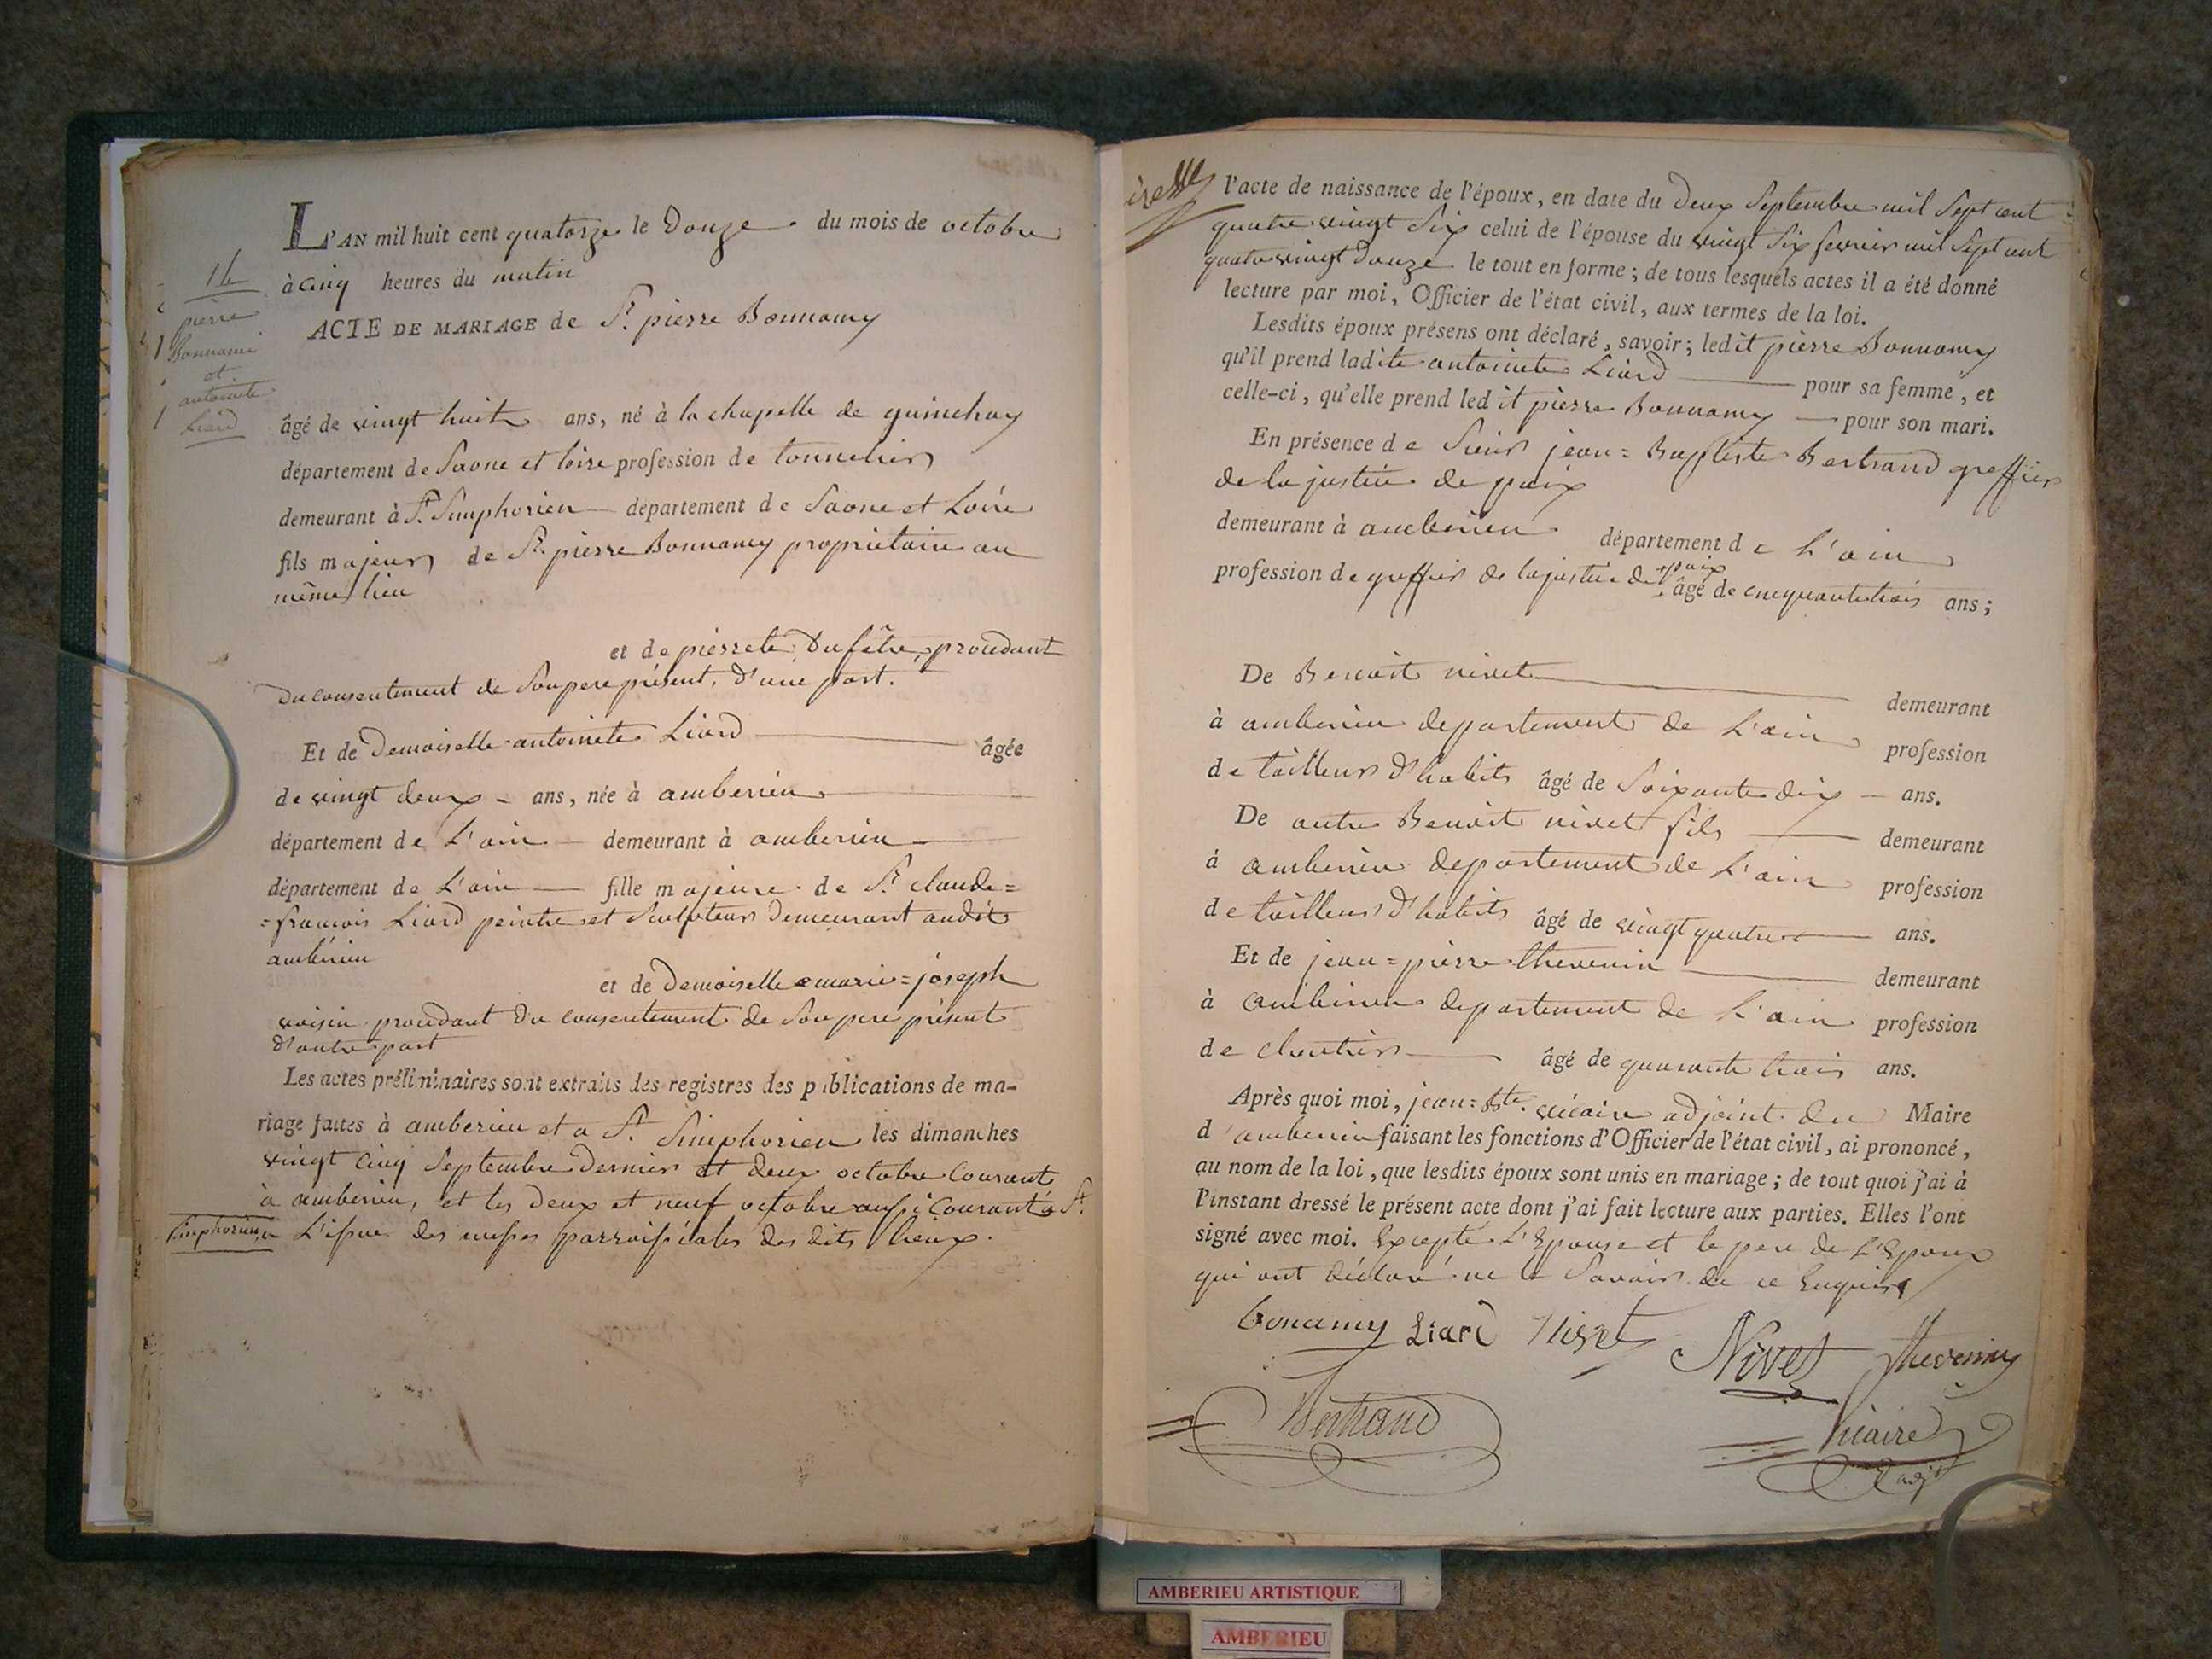 L'AN mil huit cent quatorze le Douze du mois de octobre
à cinq heures du matin
16
pierre
Bonnami
et
antoinete
Liard
ACTE DE MARIAGE de Sr. pierre Bonnamy
âgé de vingt huit ans, né à la chapelle de guinchay
département de Saone et loire profession de tonnelier
demeurant à St. Simphorien département de Saone et Loire
fils majeur de Sr. pierre Bonnamy propriétaire au
même lieu
et de pierrete Dufêtre, procédant
du consentement de Son pere présent, d'une part.
Et de Demoiselle antoinete Liard âgée
de vingt deux ans, née à amberieu
département de L'ain demeurant à amberieu
département de L'ain fille majeure de Sr. claude=
=francois Liard peintre et Sculpteur Demeurant audit
ambérieu
et de Demoiselle marie=joseph
voisin procédant Du consentement de Son pere présent
d'autre part
Les actes préliminaires sont extraits des registres des publications de ma-
riage faites à amberieu et a St. Simphorien les dimanches
vingt cinq Septembre Dernier et deux octobre Courant
à amberieu, et les deux et neuf octobre aussi Courant à St.
Simphorien a L'issue des messes parroissiales des dits lieux.
l'acte de naissance de l'époux, en date du Deux Septembre mil Sept cent
quatre vingt Six celui de l'épouse du vingt Six fevrier mil Sept cent
quatrevingt Douze le tout en forme; de tous lesquels actes il a été donné
lecture par moi, Officier de l'état civil, aux termes de la loi.
Lesdits époux présens ont déclaré, savoir; ledit pierre Bonnamy
qu'il prend ladite antoinete Liard pour sa femme, et
celle-ci, qu'elle prend ledit pierre Bonnamy pour son mari.
En présence de Sieur jean=Baptiste Bertrand greffier
de la justice de paix
demeurant à amberieu département de L'ain
profession de greffier de la justice de paix âgé de cinquante trois ans;
De Benoit nivet demeurant
à amberieu departement de L'ain profession
de tailleur d'habits âgé de Soixante dix ans.
De autre Benoit nivet fils demeurant
à amberieu departement de L'ain profession
de tailleur d'habits âgé de vingt quatre ans.
Et de jean=pierre thevenin demeurant
à amberieu departement de L'ain profession
de âgé de quarante trois ans.
Après quoi moi, jean=Bte. vicaire adjoint du Maire
d'amberieu faisant les fonctions d'Officier de l'état civil, ai prononcé,
au nom de la loi, que lesdits époux sont unis en mariage; de tout quoi j'ai à
l'instant dressé le présent acte dont j'ai fait lecture aux parties. Elles l'ont
signé avec moi. Excepté L'Epouse et le pere de L'Epoux
qui ont déclaré ne le Savoir de ce Enquis
bonamy Liard Nivet Nivet thevenin
Bertrand Vicaire
adjt
AMBERIEU ARTISTIQUE
AMBERIEU